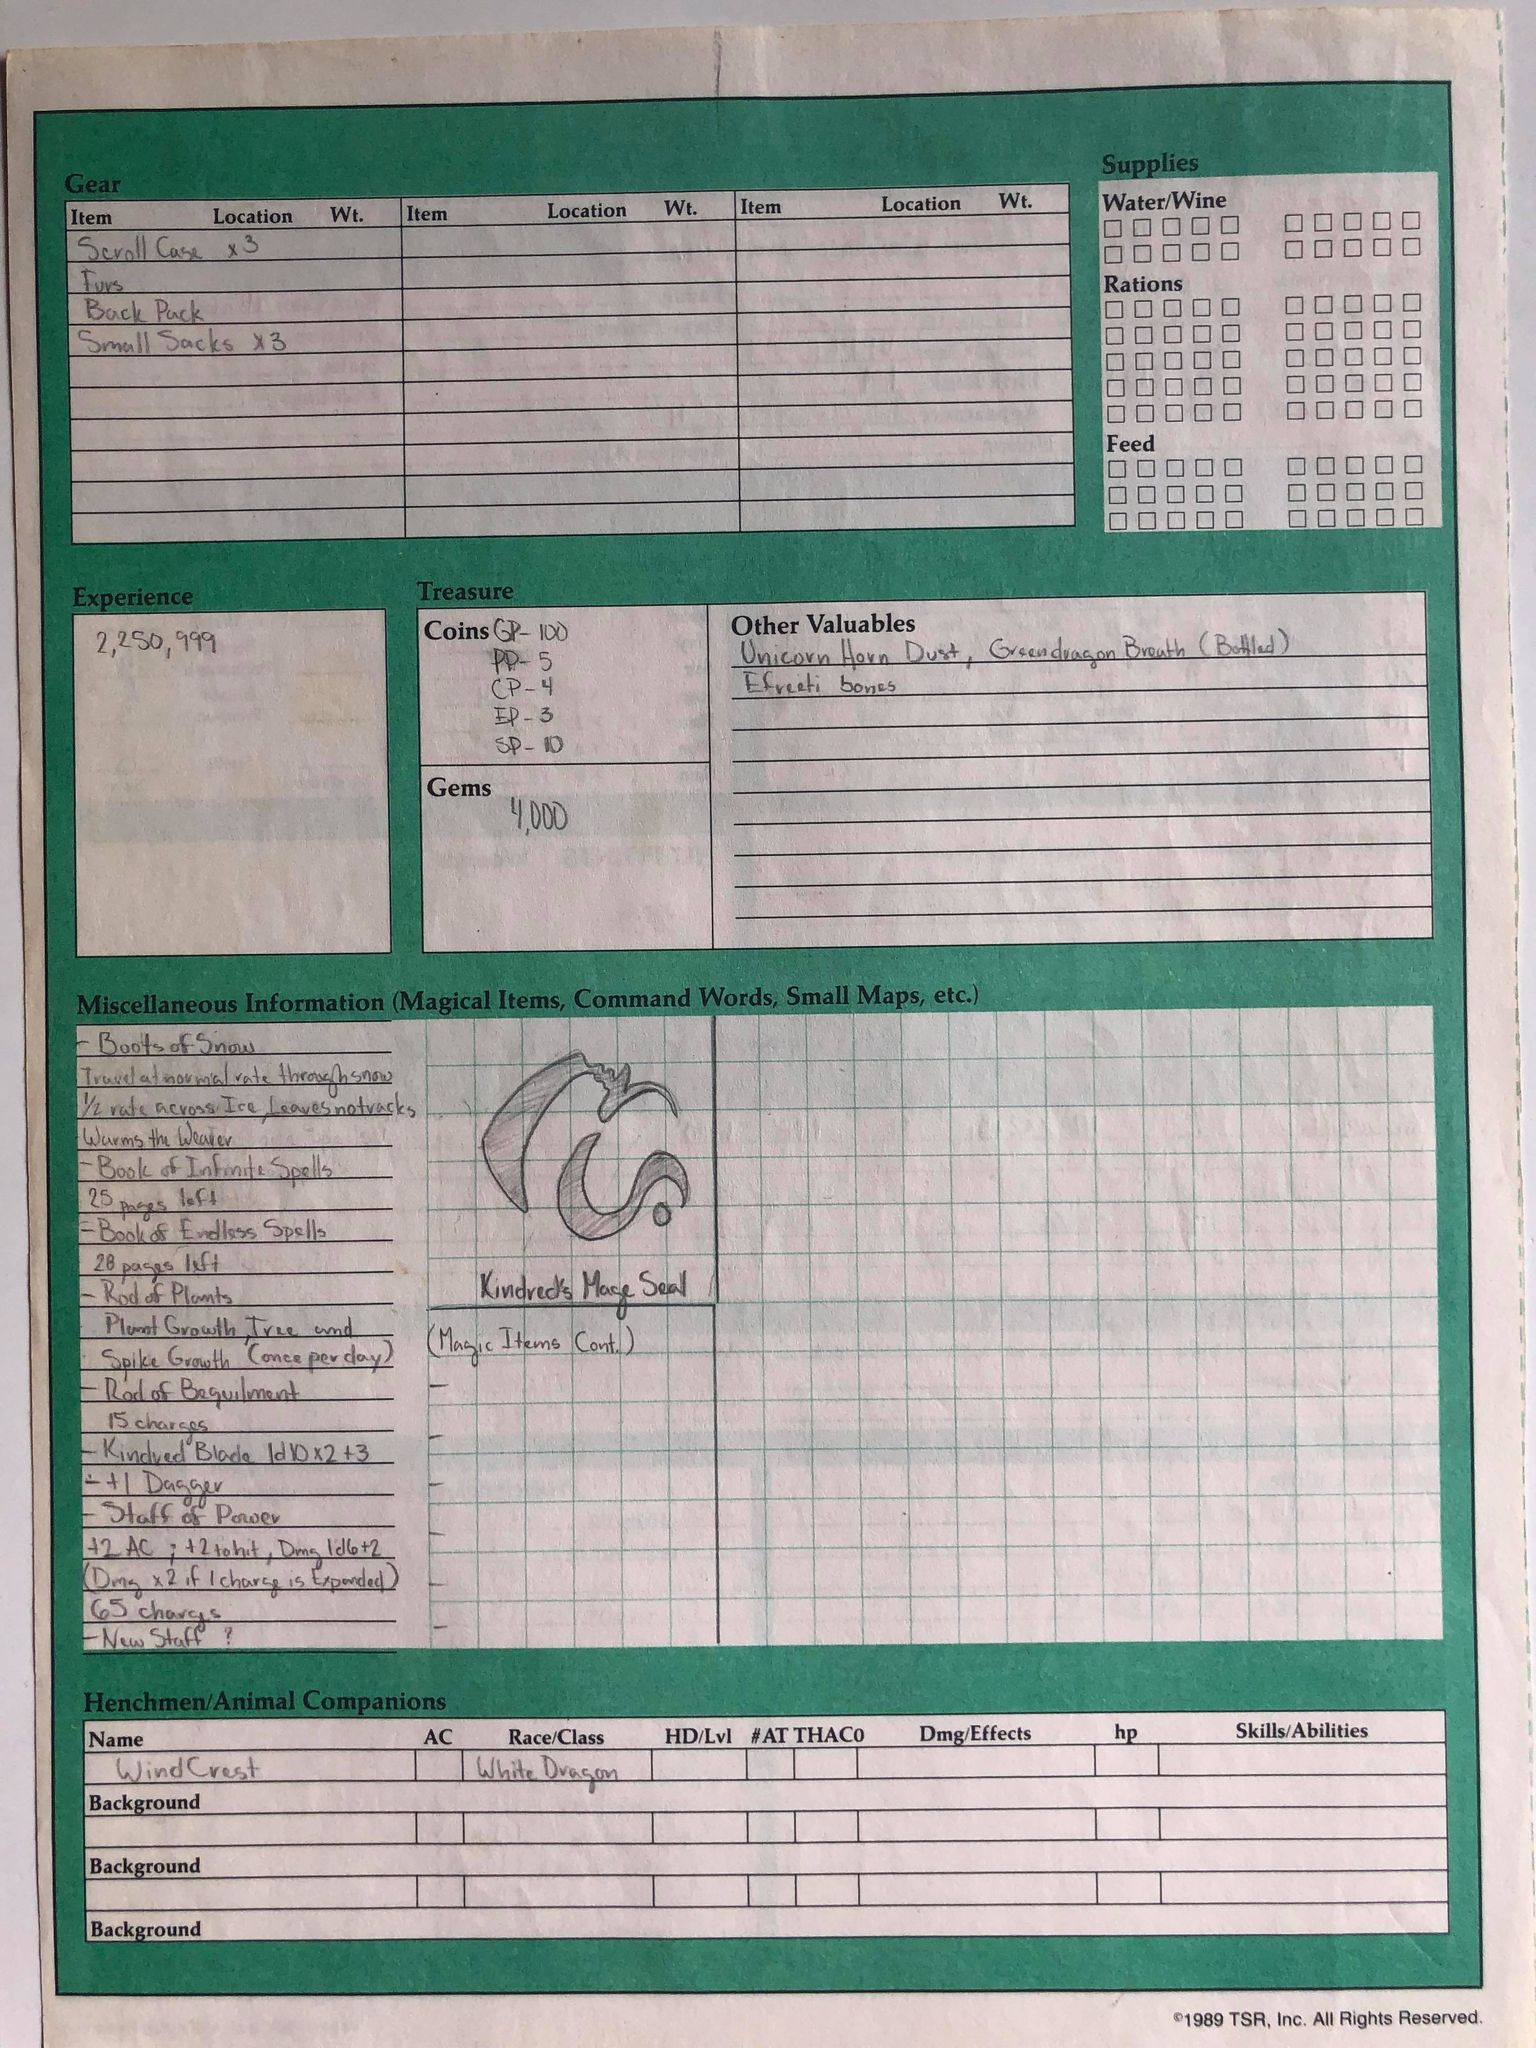 Gear
Item Location Wt. Item Location Wt. Item Location Wt.
Scroll Case x3
Furs
Back Pack
Small Sacks x3
Supplies
Water/Wine
Rations
Feed
Experience
2,250,999
Treasure
Coins GP- 100
PP- 5
CP- 4
EP- 3
SP- 10
Gems
4,000
Other Valuables
Unicorn Horn Dust, Greendragon Breath (Bottled)
Efreeti bones
Miscellaneous Information (Magical Items, Command Words, Small Maps, etc.)
- Boots of Snow
Travel at normal rate through snow
1/2 rate across Ice, Leaves no tracks
Warms the Wearer
- Book of Infinite Spells
25 pages left
- Book of Endless Spells
28 pages left
- Rod of Plants
Plant Growth, Tree and
Spike Growth (once per day)
- Rod of Beguilment
15 charges
- Kindred Blade 1d10 x2 +3
- +1 Dagger
- Staff of Power
+2 AC ; +2 to hit, Dmg 1d6+2
(Dmg x2 if 1 charge is Expended)
65 chargs
- New Staff ?
Kindred's Mage Seal
(Magic Items Cont.)
-
-
-
-
-
-
Henchmen/Animal Companions
Name AC Race/Class HD/Lvl #AT THAC0 Dmg/Effects hp Skills/Abilities
WindCrest White Dragon
Background
Background
Background
©1989 TSR, Inc. All Rights Reserved.